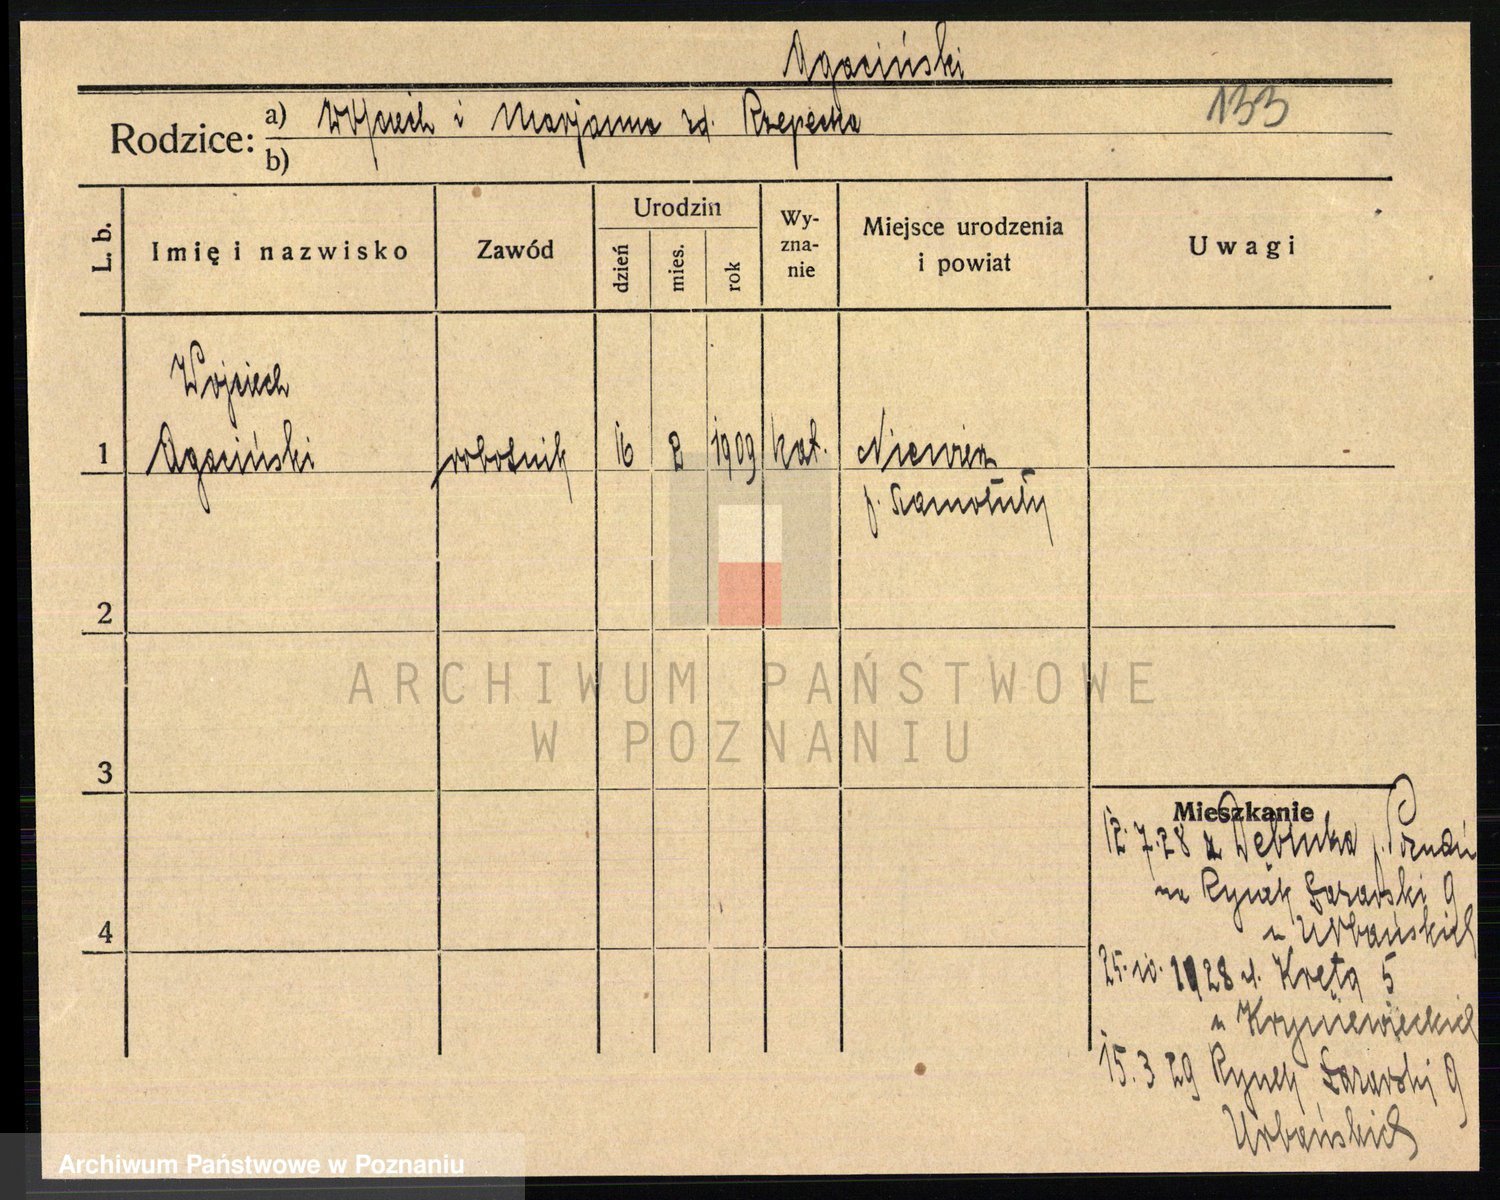 Agaciński
133
Rodzice: a) Wojciech i Marjanna zd. Rzepecka
b)
L. b.
Imię i nazwisko
Zawód
Urodzin
dzień
mies.
rok
Wy-
zna-
nie
Miejsce urodzenia
i powiat
Uwagi
Wojciech
1 Agaciński robotnik 16 2 1909 kat. Niewierz
p. Szamotuły
2
3
4
ARCHIWUM PAŃSTWOWE
W POZNANIU
Mieszkanie
12.7.28 z Dębinka p. Poznań
na Rynek Łazarski 9
u Urbańskich
25.10.1928 ul. Kręta 5
u Kryniewieckich
15.3 29 Rynek Łazarski 9
Urbańskich
Archiwum Państwowe w Poznaniu